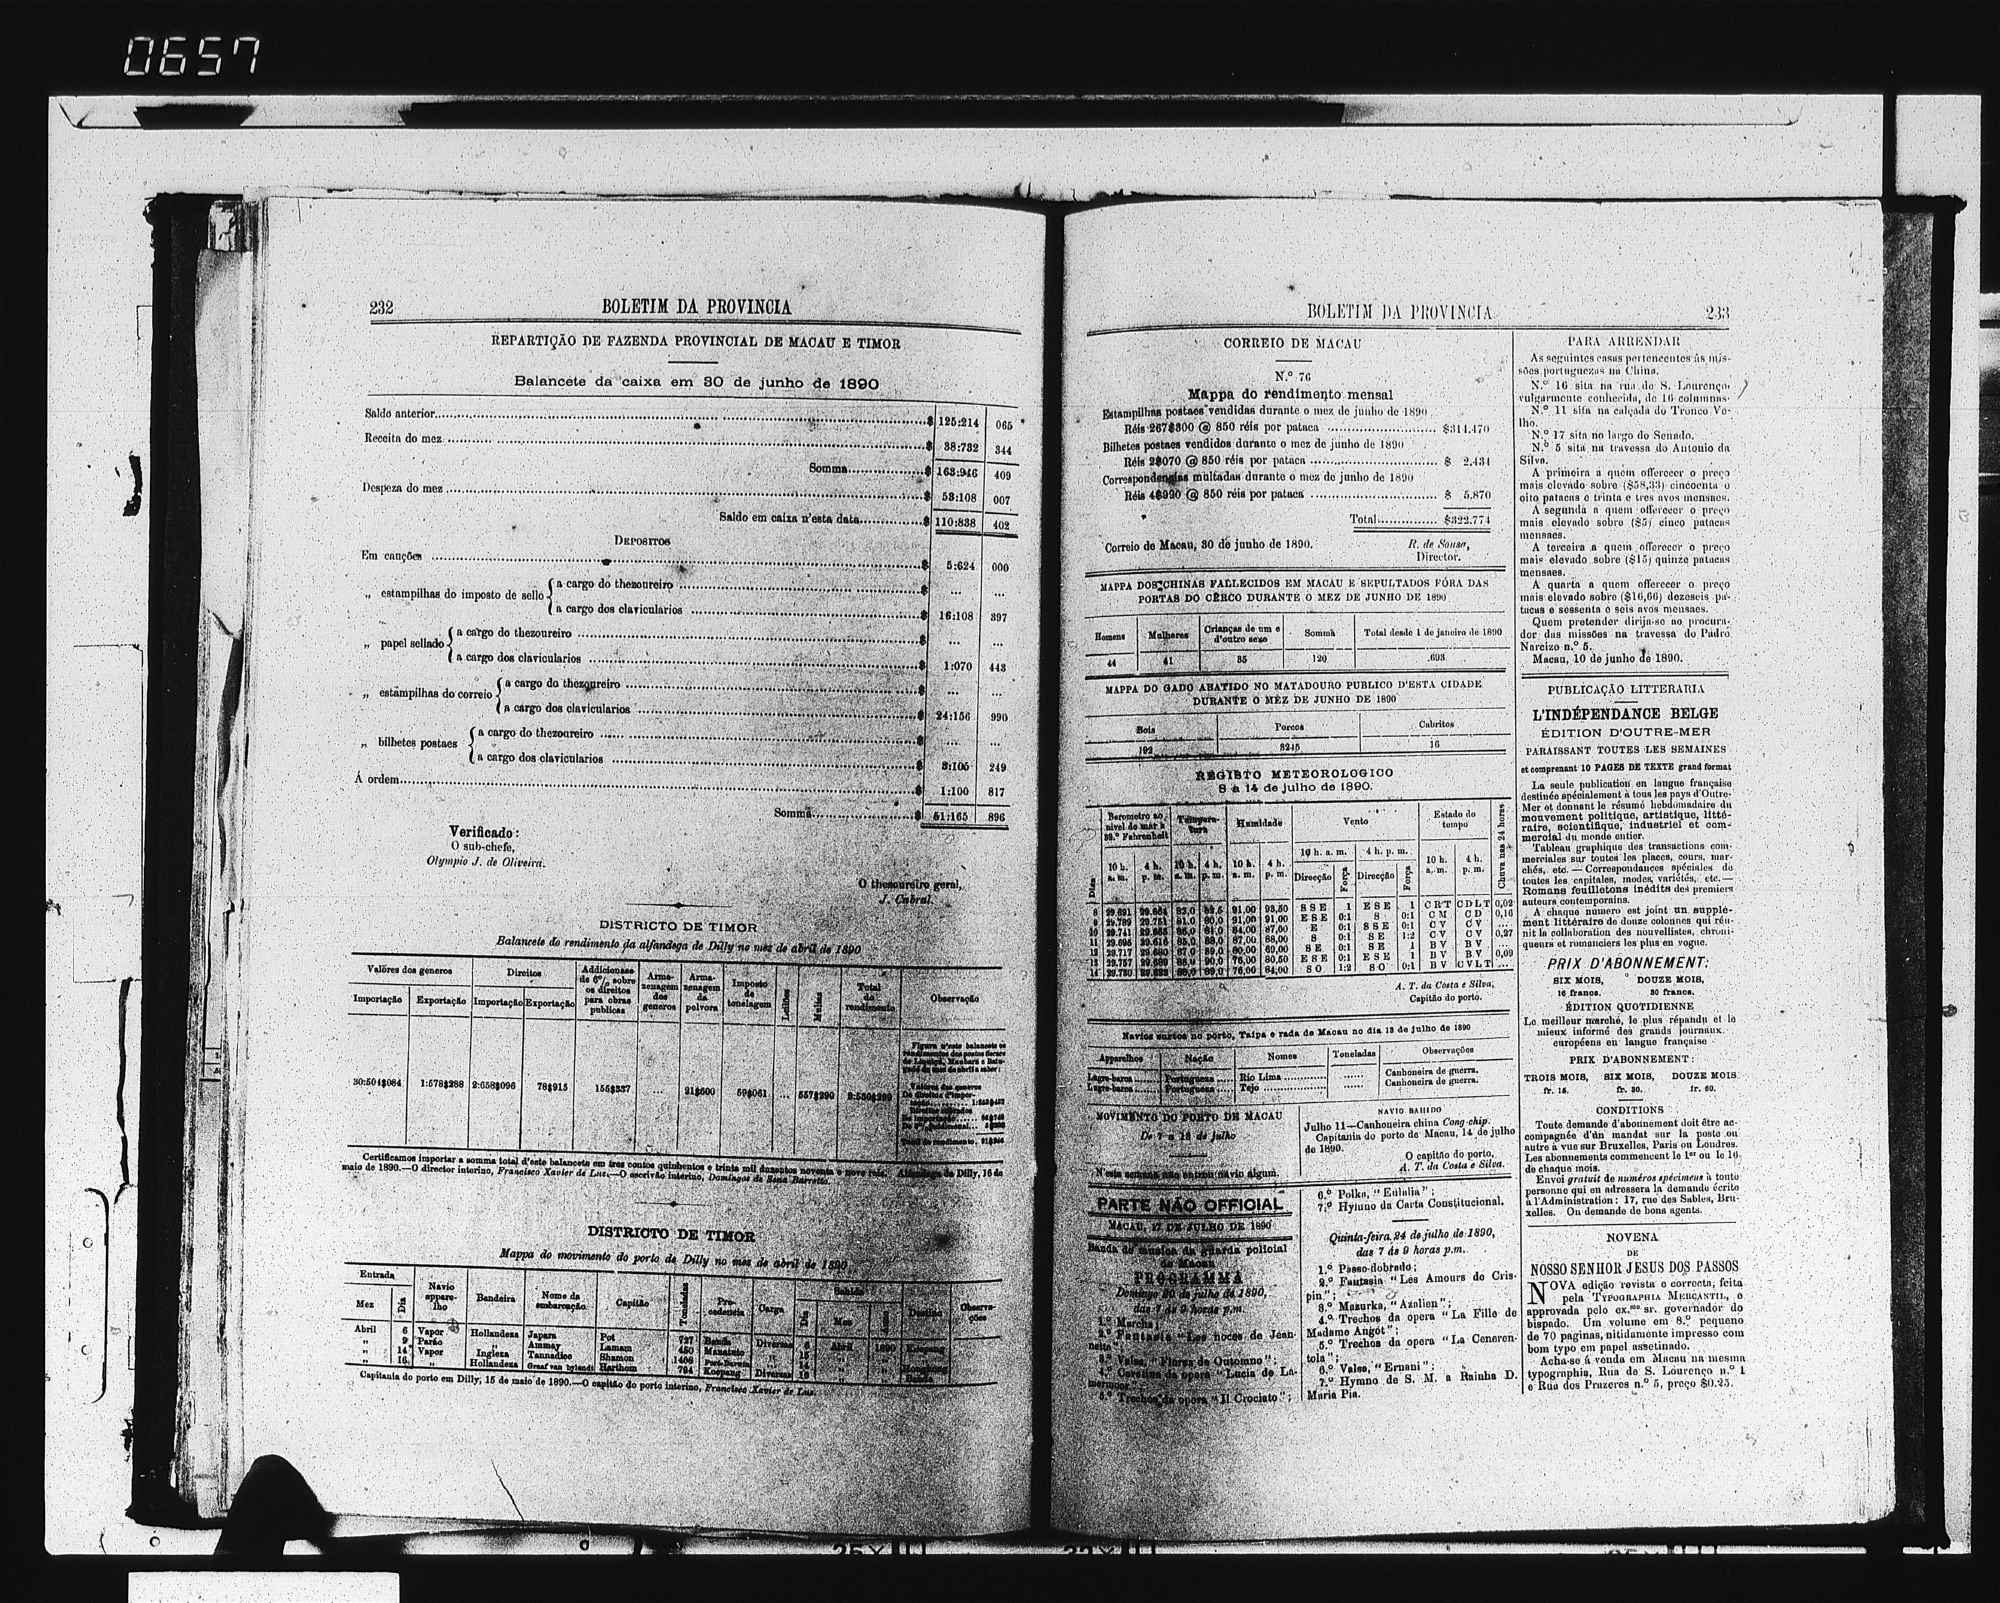 0657
232 BOLETIM DA PROVINCIA
REPARTIÇÃO DE FAZENDA PROVINCIAL DE MACAU E TIMOR
Balancete da caixa em 30 de junho de 1890
Saldo anterior $ 125:214 065
Receita do mez $ 38:732 344
Somma $ 163:946 409
Despeza do mez $ 53:108 007
Saldo em caixa n'esta data $ 110:838 402
DEPOSITOS
Em canções $ 5:624 000
„ estampilhas do imposto de sello { a cargo do thezoureiro $ ... ...
a cargo dos clavicularios $ 16:108 397
„ papel sellado { a cargo do thezoureiro $ ... ...
a cargo dos clavicularios $ 1:070 443
„ estampilhas do correio { a cargo do thezoureiro $ ... ...
a cargo dos clavicularios $ 24:156 990
„ bilhetes postaes { a cargo do thezoureiro $ ... ...
a cargo dos clavicularios $ 3:105 249
Á ordem $ 1:100 817
Somma $ 51:165 896
Verificado:
O sub-chefe,
Olympio J. de Oliveira.
O thesoureiro geral,
J. Cabral.
DISTRICTO DE TIMOR
Balancete do rendimento da alfandega de Dilly no mez de abril de 1890
Valôres dos generos Direitos Addicionaes de 6% sobre os direitos para obras publicas Armazenagem dos generos Armazenagem da polvora Imposto de tonelagem Leilões Multas Total do rendimento Observação
Importação Exportação Importação Exportação
30:501$084 1:578$288 2:658$096 78$915 155$337 ... 21$600 59$061 ... 557$290
Certificamos importar a somma total d'este balancete em tres contos quinhentos e trinta mil duzentos noventa e nove reis. Alfandega de Dilly, 16 de
maio de 1890.—O director interino, Francisco Xavier de Luz.—O escrivão interino, Domingos de Sena Barretto.
DISTRICTO DE TIMOR
Mappa do movimento do porto de Dilly no mez de abril de 1890
Entrada Navio apparelho Bandeira Nome da embarcação Capitão Toneladas Procedencia Carga Sahida Destino Observações
Mez Dia Dia Mez
Abril 6 Vapor Hollandeza Japara Pot 727 Banda Diversas 6 Abril 1890 Koepang
„ 9 Parão „ Ammay Lamam 450 Manatuto „ 15
„ 14 Vapor Ingleza Tannadice Shannon 1406 „ 14
„ 16 „ Hollandeza Graaf van bylandt Harthorn 794 Koepang Diversas 16 Banda
Capitania do porto em Dilly, 15 de maio de 1890.—O capitão do porto interino, Francisco Xavier de Luz.
BOLETIM DA PROVINCIA 233
CORREIO DE MACAU
N.º 76
Mappa do rendimento mensal
Estampilhas postaes vendidas durante o mez de junho de 1890
Réis 267$300 @ 850 réis por pataca $314.470
Bilhetes postaes vendidos durante o mez de junho de 1890
Réis 2$070 @ 850 réis por pataca $ 2.434
Correspondencias multadas durante o mez de junho de 1890
Réis 4$990 @ 850 réis por pataca $ 5.870
Total $322.774
Correio de Macau, 30 de junho de 1890. R. de Sousa,
Director.
MAPPA DOS CHINAS FALLECIDOS EM MACAU E SEPULTADOS FÓRA DAS
PORTAS DO CÊRCO DURANTE O MEZ DE JUNHO DE 1890
Homens Mulheres Crianças de um e d'outro sexo Somma Total desde 1 de janeiro de 1890
44 41 35 120 693
MAPPA DO GADO ABATIDO NO MATADOURO PUBLICO D'ESTA CIDADE
DURANTE O MEZ DE JUNHO DE 1890
Bois Porcos Cabritos
192 3245 16
REGISTO METEOROLOGICO
8 a 14 de julho de 1890.
Dias Barometro ao nivel do mar a 32.º Fahrenheit Temperatura Humidade Vento Estado do tempo Chuva nas 24 horas
10 h. a. m. 4 h. p. m. 10 h. a. m. 4 h. p. m. 10 h. a. m. 4 h. p. m. 10 h. a. m. 4 h. p. m. 10 h. a. m. 4 h. p. m.
Direcção Força Direcção Força
8 29.691 29.664 83,0 82,5 91,00 93,50 SSE 1 ESE 1 CRT CDLT 0,02
9 29.789 29.751 81,0 80,0 91,00 91,00 ESE 0:1 S 0:1 CM CD 0,16
10 29.741 84,00 87,00 E 0:1 SSE 0:1 CV CV ...
11 29.695 29.616 87,00 88,00 S 0:1 SE 1:2 CV CV 0,27
12 29.717 80,00 69,00 SE 0:1 SE 1 BV BV ...
13 29.757 76,00 80,50 ESE 0:1 ESE 1 BV BV 0,09
14 29.780 76,00 84,00 SO 1:2 SO 0:1 BV CVLT ...
A. T. da Costa e Silva,
Capitão do porto.
Navios surtos no porto, Taipa e rada de Macau no dia 13 de julho de 1890
Apparelhos Nação Nomes Toneladas Observações
Lugre-barca Portugueza Rio Lima ...... Canhoneira de guerra.
Lugre-barca Portugueza Tejo ...... Canhoneira de guerra.
MOVIMENTO DO PORTO DE MACAU
De 7 a 13 de julho
N'esta semana não entrou navio algum.
NAVIO SAHIDO
Julho 11—Canhoneira china Cong-chip.
Capitania do porto de Macau, 14 de julho
de 1890.
O capitão do porto,
A. T. da Costa e Silva.
PARTE NÃO OFFICIAL
MACAU, 17 DE JULHO DE 1890
Banda de musica da guarda policial
de Macau
PROGRAMMA
Domingo 20 de julho de 1890,
das 7 ás 9 horas p.m.
1.º Marcha;
2.º Fantasia "Les noces de Jeannette";
3.º Valsa, "Flores do Outomno";
4.º Cavatina da opera "Lucia de Lamermoor";
5.º Trechos da opera "Il Crociato";
6.º Polka, "Eulalia";
7.º Hymno da Carta Constitucional.
Quinta-feira 24 de julho de 1890,
das 7 ás 9 horas p.m.
1.º Passo-dobrado;
2.º Fantasia "Les Amours de Crispin";
3.º Mazurka, "Azalien";
4.º Trechos da opera "La Fille de
Madame Angot";
5.º Trechos da opera "La Cenerentola";
6.º Valsa, "Ernani";
7.º Hymno de S. M. a Rainha D.
Maria Pia.
PARA ARRENDAR
As seguintes casas pertencentes ás missões
portuguezas na China.
N.º 16 sita na rua de S. Lourenço,
vulgarmente conhecida, de 16 columnas.
N.º 11 sita na calçada do Tronco Velho.
N.º 17 sita no largo do Senado.
N.º 5 sita na travessa do Antonio da
Silva.
A primeira a quem offerecer o preço
mais elevado sobre ($58,33) cincoenta e
oito patacas e trinta e tres avos mensaes.
A segunda a quem offerecer o preço
mais elevado sobre ($5) cinco patacas
mensaes.
A terceira a quem offerecer o preço
mais elevado sobre ($15) quinze patacas
mensaes.
A quarta a quem offerecer o preço
mais elevado sobre ($16,66) dezeseis patacas
e sessenta e seis avos mensaes.
Quem pretender dirija-se ao procurador
das missões na travessa do Padre
Narcizo n.º 5.
Macau, 10 de junho de 1890.
PUBLICAÇÃO LITTERARIA
L'INDÉPENDANCE BELGE
ÉDITION D'OUTRE-MER
PARAISSANT TOUTES LES SEMAINES
et comprenant 10 PAGES DE TEXTE grand format
La seule publication en langue française
destinée spécialement à tous les pays d'Outre-
Mer et donnant le résumé hebdomadaire du
mouvement politique, artistique, littéraire,
scientifique, industriel et commercial
du monde entier.
Tableau graphique des transactions commerciales
sur toutes les places, cours, marchés,
etc. — Correspondances spéciales de
toutes les capitales, modes, variétés, etc.—
Romans feuilletons inédits des premiers
auteurs contemporains.
A chaque numero est joint un supplément
littéraire de douze colonnes qui réunit
la collaboration des nouvellistes, chroniqueurs
et romanciers les plus en vogue.
PRIX D'ABONNEMENT:
SIX MOIS, DOUZE MOIS,
16 francs. 30 francs.
ÉDITION QUOTIDIENNE
Le meilleur marché, le plus répandu et le
mieux informé des grands journaux
européens en langue française
PRIX D'ABONNEMENT:
TROIS MOIS, SIX MOIS, DOUZE MOIS
fr. 15. fr. 30. fr. 60.
CONDITIONS
Toute demande d'abonnement doit être accompagnée
d'un mandat sur la poste ou
autre à vue sur Bruxelles, Paris ou Londres.
Les abonnements commencent le 1er ou le 16
de chaque mois.
Envoi gratuit de numéros spécimens à toute
personne qui en adressera la demande écrite
à l'Administration: 17, rue des Sables, Bruxelles.
On demande de bons agents.
NOVENA
DE
NOSSO SENHOR JESUS DOS PASSOS
NOVA edição revista e correcta, feita
pela TYPOGRAPHIA MERCANTIL, e
approvada pelo ex.mo sr. governador do
bispado. Um volume em 8.º pequeno
de 70 paginas, nitidamente impresso com
bom typo em papel assetinado.
Acha-se á venda em Macau na mesma
typographia, Rua de S. Lourenço n.º 1
e Rua dos Prazeres n.º 5, preço $0.25.